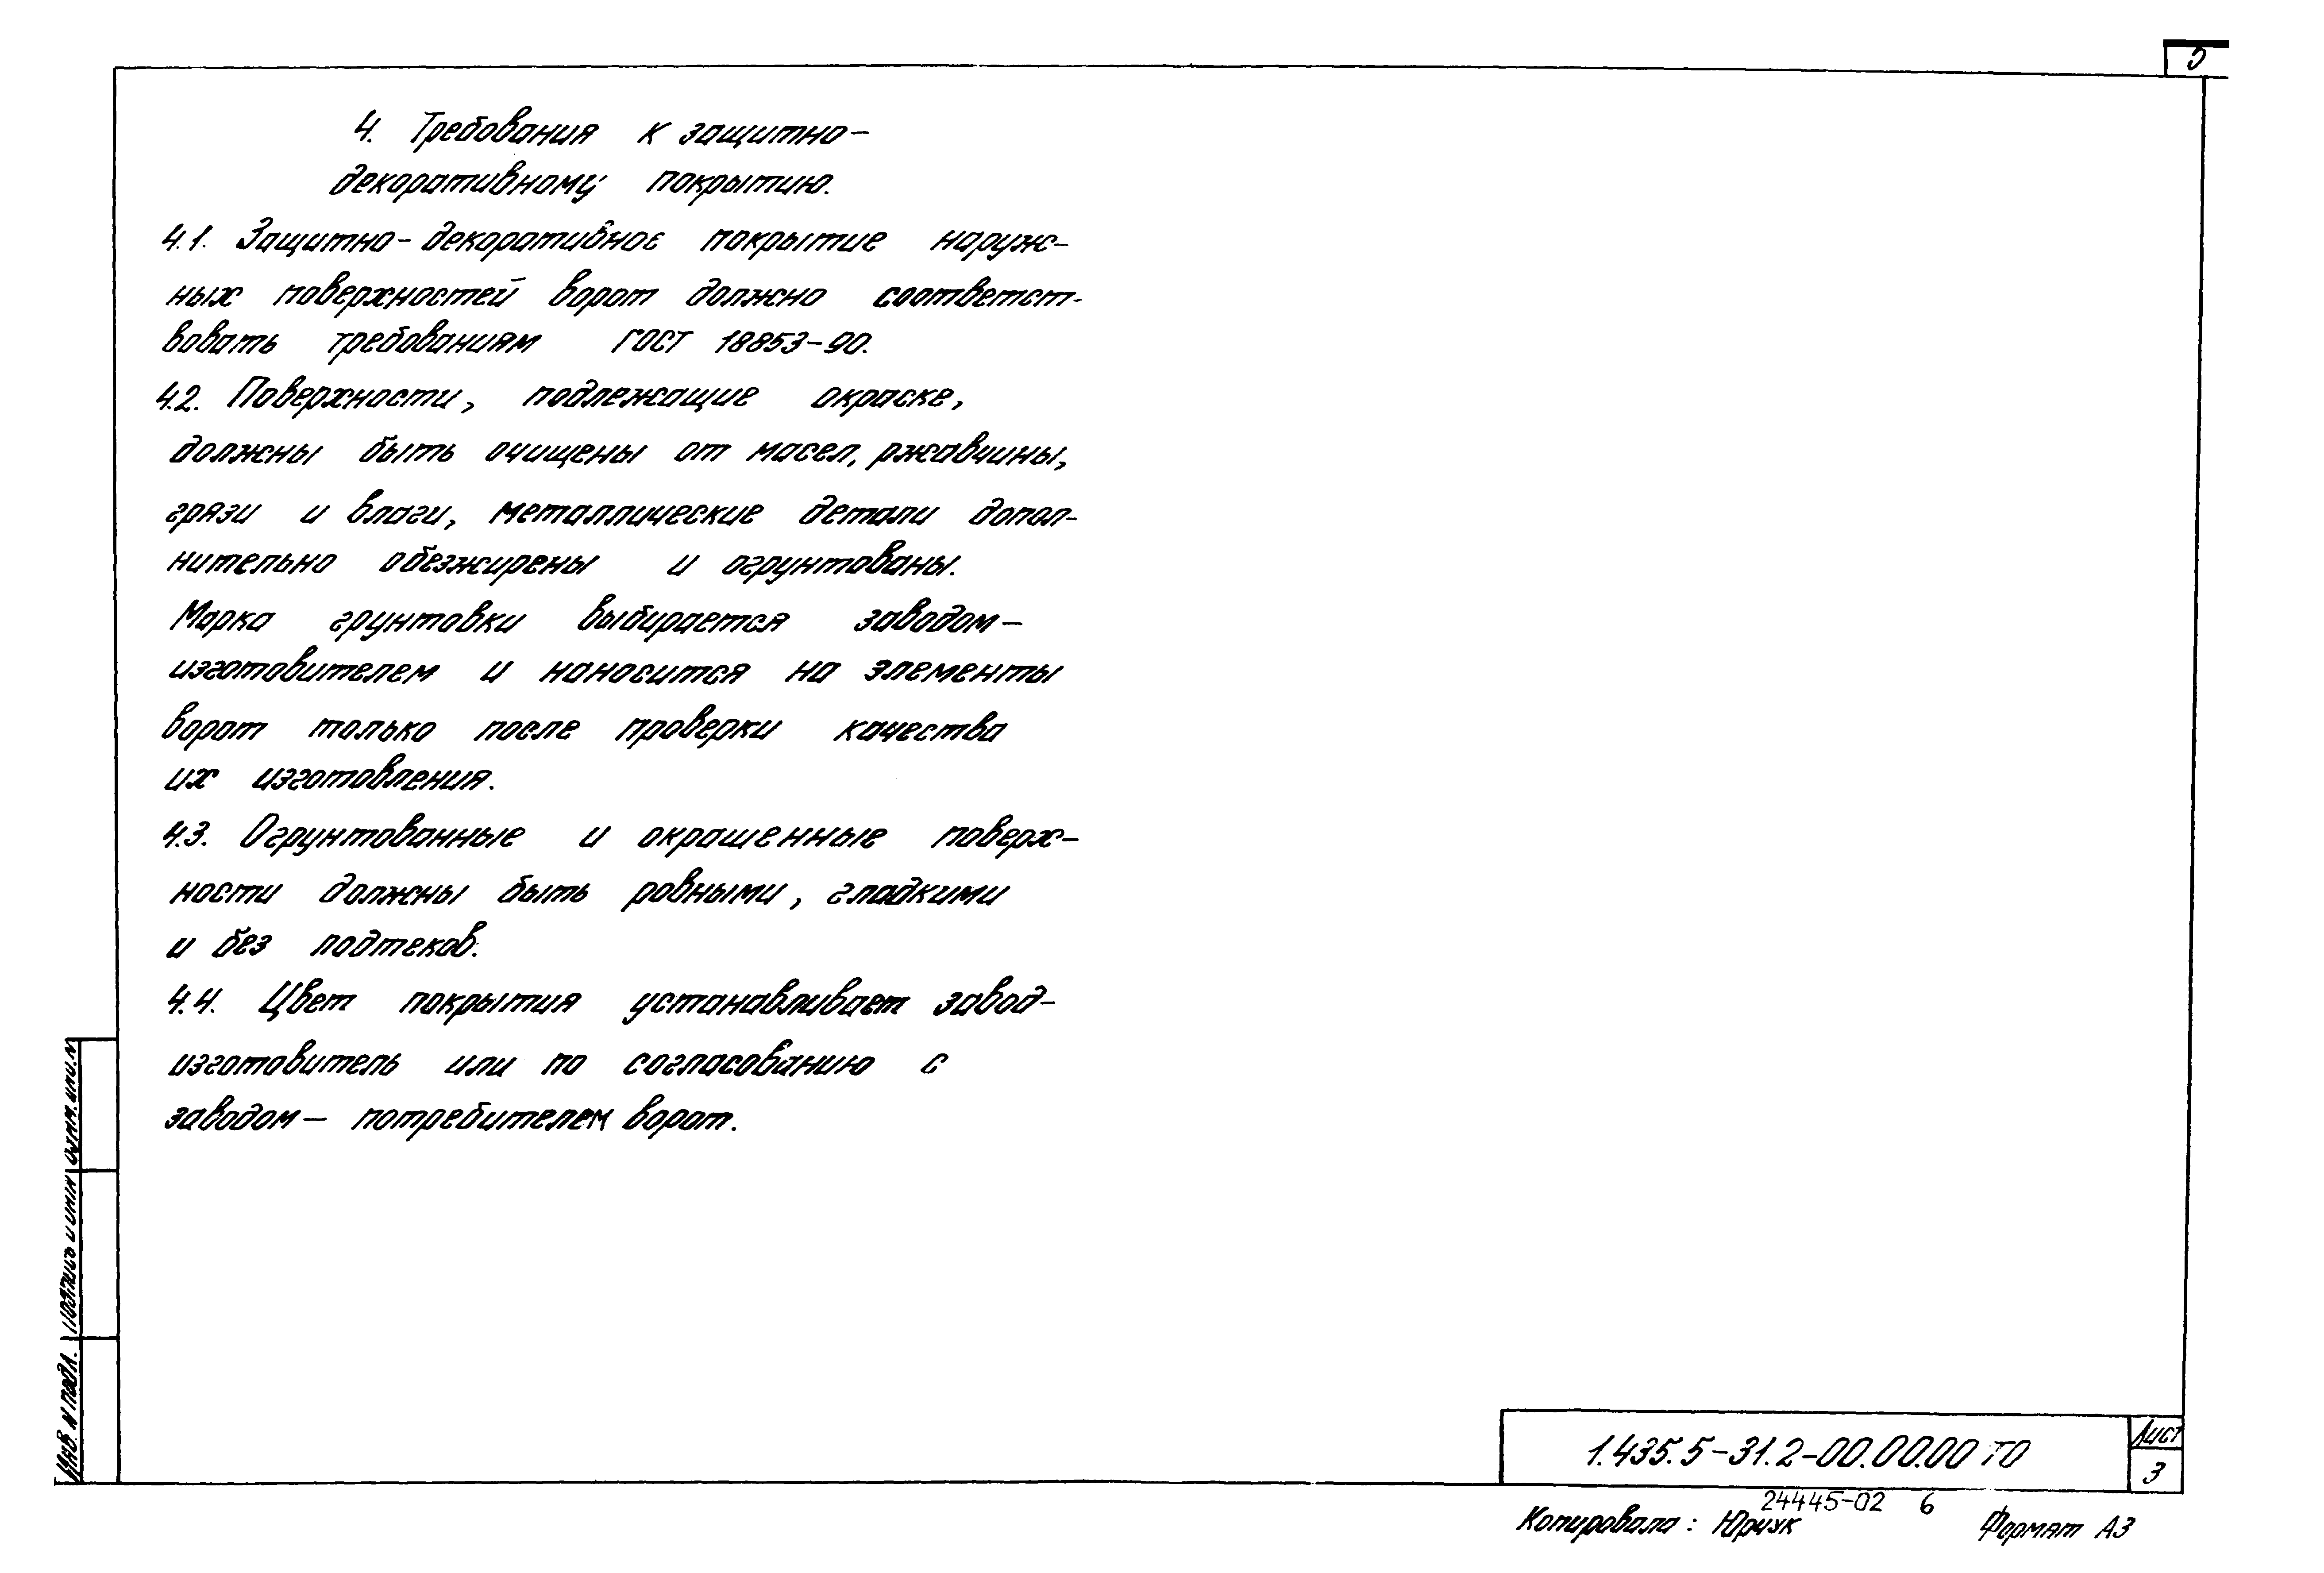 5
4. Требования к защитно-
декоративному покрытию.
4.1. Защитно-декоративное покрытие наруж-
ных поверхностей ворот должно соответст-
вовать требованиям ГОСТ 18853-90.
4.2. Поверхности, подлежащие окраске,
должны быть очищены от масел, ржавчины,
грязи и влаги, металлические детали допол-
нительно обезжирены и огрунтованы.
Марка грунтовки выбирается заводом-
изготовителем и наносится на элементы
ворот только после проверки качества
их изготовления.
4.3. Огрунтованные и окрашенные поверх-
ности должны быть ровными, гладкими
и без подтеков.
4.4. Цвет покрытия устанавливает завод-
изготовитель или по согласованию с
заводом- потребителем ворот.
Взам. инв. N
Подпись и дата
Инв. N подл.
1.435.5-31.2-00.00.00 ТО
Лист
3
24445-02 6
Копировала: Юрчук
Формат А3